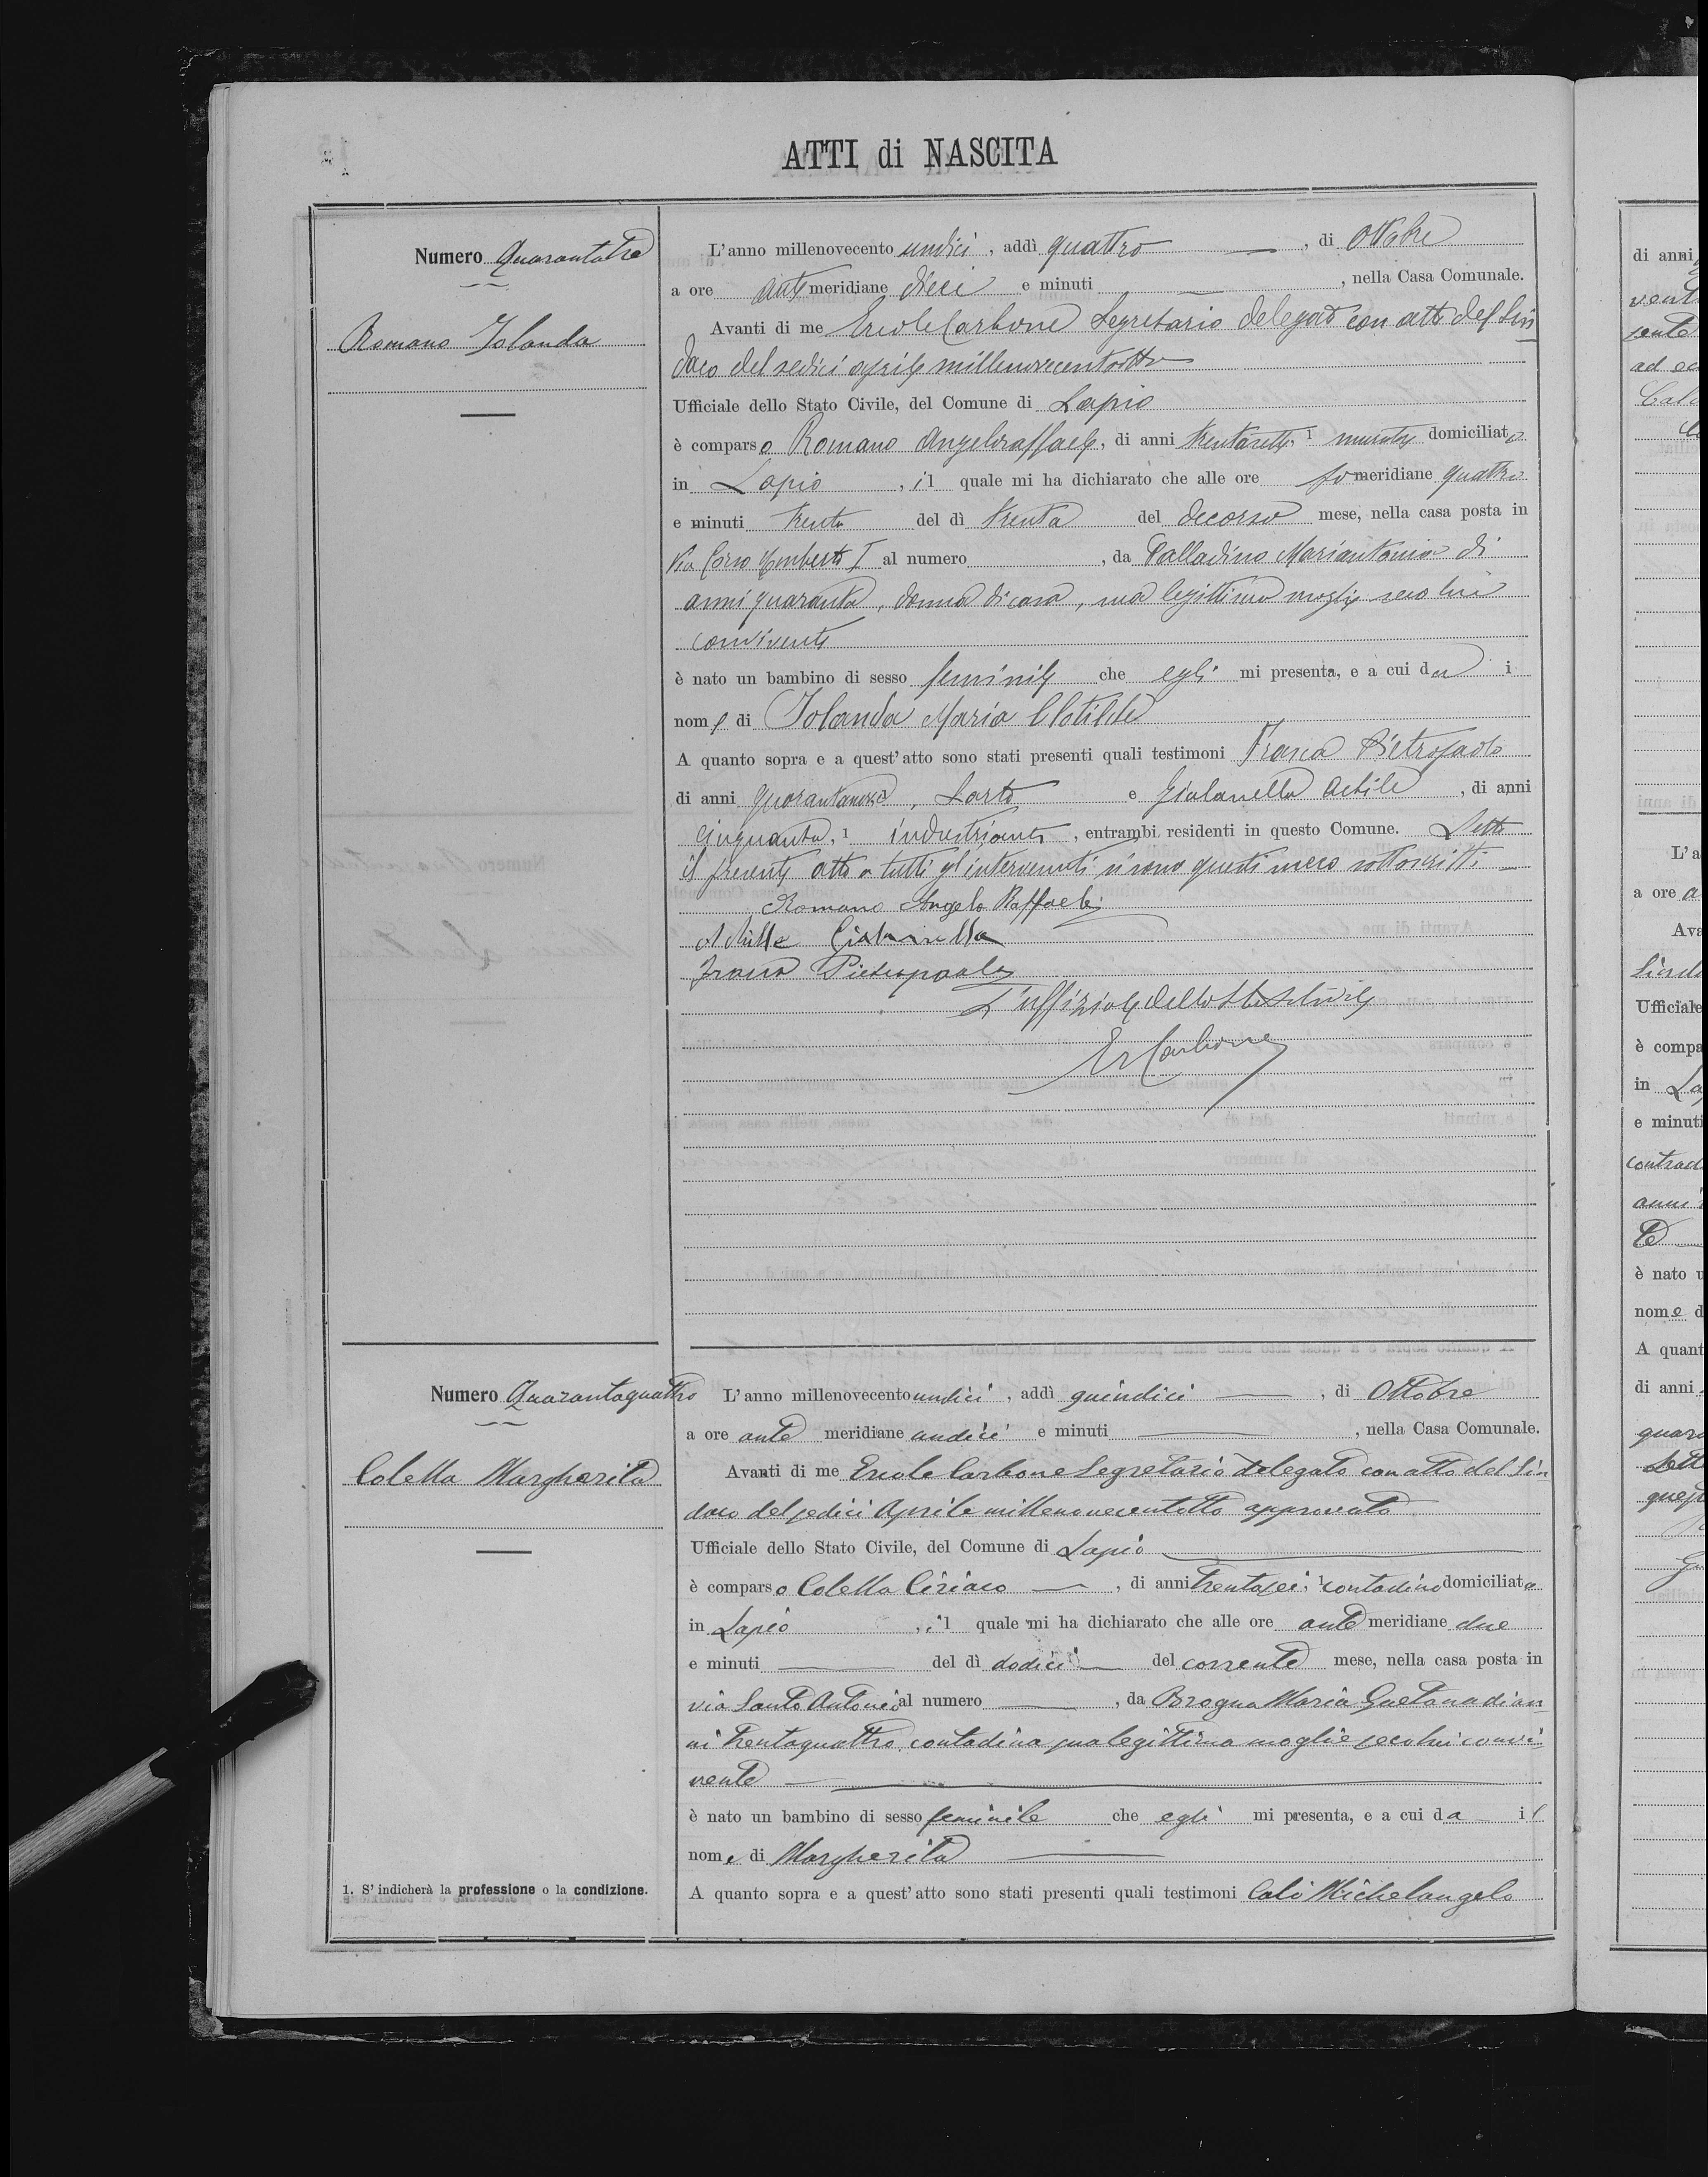 ATTI di NASCITA
Numero Quarantatre
Romano Iolanda
L'anno millenovecento undici, addì quattro, di Ottobre
a ore antimeridiane dieci e minuti, nella Casa Comunale.
Avanti di me Ercole Carbone Segretario delegato con atto del Sin
daco del sedici aprile millenovecentotto
Ufficiale dello Stato Civile, del Comune di Lapio
è comparso Romano Angeloraffaele, di anni trentasette, 1 muratore domiciliato
in Lapio, il quale mi ha dichiarato che alle ore pomeridiane quattro
e minuti trenta del dì trenta del decorso mese, nella casa posta in
Via Corso Umberto I al numero, da Palladino Mariantonia di
anni quaranta, donna di casa, sua legittima moglie seco lui
convivente
è nato un bambino di sesso feminile che egli mi presenta, e a cui da i
nome di Iolanda Maria Clotilde
A quanto sopra e a quest'atto sono stati presenti quali testimoni Frasca Pietropaolo
di anni, Sarto e Gialanella Achile, di anni
cinquanta, 1 industriante, entrambi residenti in questo Comune. Letto
il presente atto a tutti gl'intervenuti si sono questi meco sottoscritti
Romano Angelo Raffaele
Achille Gialanella
Frasca Pietropaolo
L'uffiziale dello Stato Civile
Er Carbone
Numero Quarantaquattro
Colella Margherita
L'anno millenovecento undici, addì quindici, di Ottobre
a ore ante meridiane undici e minuti, nella Casa Comunale.
Avanti di me Ercole Carbone Segretario delegato con atto del Sin
daco del sedici Aprile millenovecentotto approvato
Ufficiale dello Stato Civile, del Comune di Lapio
è comparso Colella Ciriaco, di anni trentasei, 1 contadino domiciliato
in Lapio, il quale mi ha dichiarato che alle ore ante meridiane due
e minuti del dì dodici del corrente mese, nella casa posta in
via Santo Antonio al numero, da Brogna Maria Gaetana di an
ni trentaquattro, contadina sua legittima moglie seco lui convi
vente
è nato un bambino di sesso feminile che egli mi presenta, e a cui da il
nome di Margherita
A quanto sopra e a quest'atto sono stati presenti quali testimoni Calò Michelangelo
1. S'indicherà la professione o la condizione.
di anni
vent
sente
L'a
a ore a
Ava
Sinda
Ufficiale
è compa
in La
e minuti
contrad
anni
te
è nato u
nome d
A quant
di anni